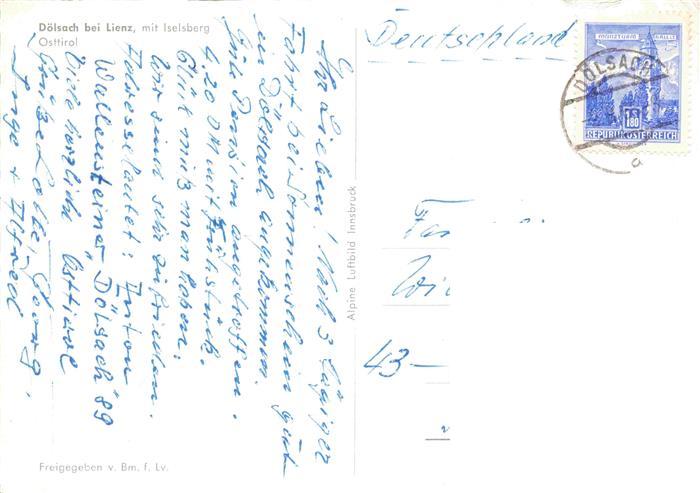 Dölsach bei Lienz, mit Iselsberg
Osttirol
Ihr Lieben! Nach 3 tägiger
Fahrt bei Sonnenschein gut
in Dölsach angekommen.
Gute Pension angetroffen.
4.20 DM mit Frühstück.
Glück muß man haben.
Wir sind sehr zufrieden.
Adresse lautet: Anton
Wallensteiner, Dölsach 89
Viele herzliche Osttirol
Grüße Georg,
Inge + Alfred
Freigegeben v. Bm. f. Lv.
Alpine Luftbild Innsbruck
Deutschland
MÜNZTURM HALL
DÖLSACH
1.80
REPUBLIK ÖSTERREICH
a
Fa
Wi
43-